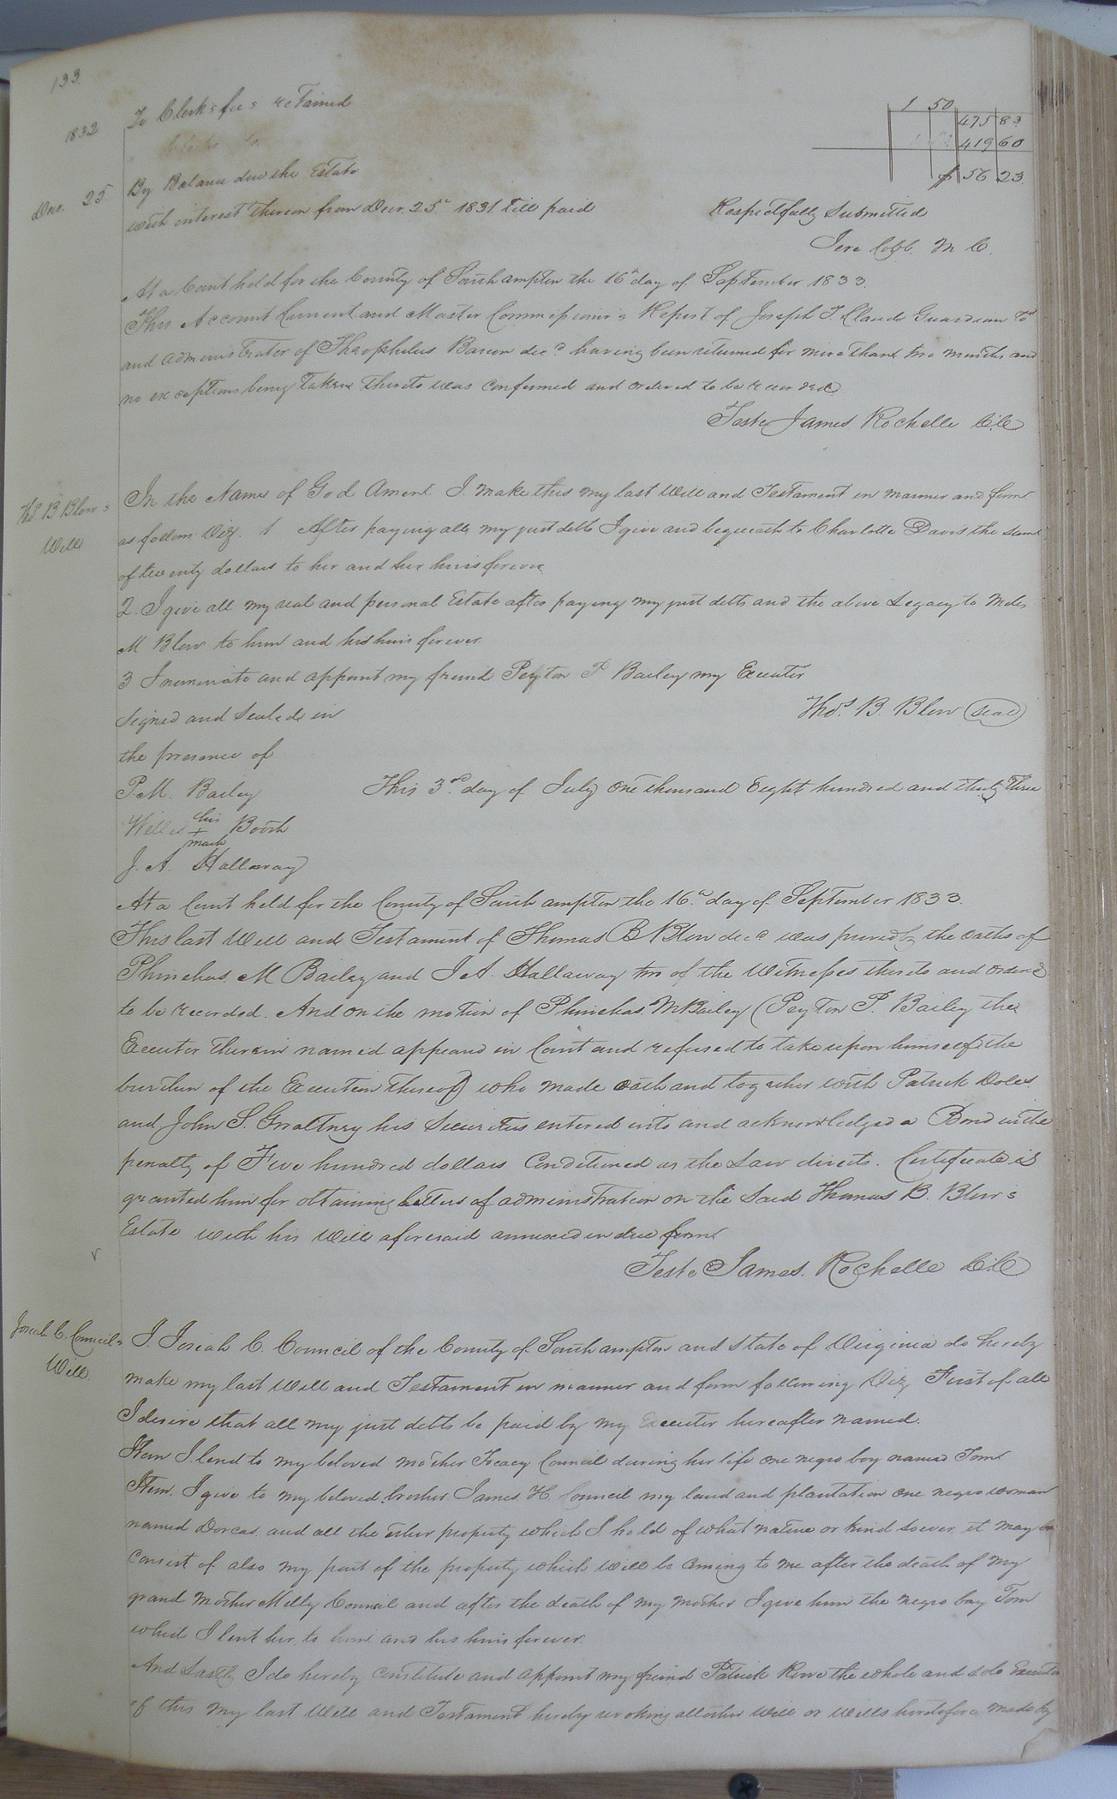 133
1832 To Clerks fees retained 1 50
475 83
419 60
Decr. 25 By Balance due the Estate $ 56 23
with interest thereon from Decr. 25th 1831 till paid
Respectfully Submitted
Jere Cobb. M C.
At a Court held for the County of Southampton the 16th day of September 1833.
This Account Current and Master Commissioner's Report of Joseph T Claud Guardian to
and administrator of Theophilus Barom decd having been returned for more than two months and
no exceptions being taken thereto was confirmed and ordered to be recorded
Teste James Rochelle C.C
Thos. B Blow's
Will
In the Name of God Amen. I make this my last Will and Testament in manner and form
as follows Viz. 1 After paying all my just debts I give and bequeath to Charlotte Davis the sum
of twenty dollars to her and her heirs forever
2. I give all my real and personal Estate after paying my just debts and the above Legacy to
M Blow to him and his heirs forever
3 I nominate and appoint my friend Peyton P Bailey my Executor
Thos. B. Blow (Seal)
Signed and Sealed in
the presence of
P.M. Bailey This 3rd day of July one thousand Eight hundred and thirty Three
Willis his + mark Booth
J. A. Hallaway
At a Court held for the County of Southampton the 16th day of September 1833.
This last Will and Testament of Thomas B Blow decd was proved by the oaths of
Phinehas M Bailey and J. A. Hallaway two of the Witnesses thereto and ordered
to be recorded. And on the motion of Phinehas M Bailey (Peyton P. Bailey the
Executor therein named appeared in Court and refused to take upon himself the
burthen of the Execution thereof) who made oath and together with Patrick Doles
and John S. Gwaltney his Securities entered into and acknowledged a Bond in the
penalty of Five hundred dollars Conditioned as the Law directs. Certificate is
granted him for obtaining letters of administration on the Said Thomas B. Blow's
Estate with his Will aforesaid annexed in due form
Teste James. Rochelle C.C
Josiah C. Council's
Will
I. Josiah C. Council of the County of Southampton and State of Virginia do hereby
make my last Will and Testament in manner and form following Viz First of all
I desire that all my just debts be paid by my Executor hereafter named.
Item I lend to my beloved mother Treacy Council during her life one negro boy named Tom
Item. I give to my beloved brother James H Council my land and plantation one negro woman
named Dorcas, and all the other property which I hold of what nature or kind soever it may
consist of also my part of the property which will be coming to me after the death of my
grand Mother Milly Council and after the death of my mother I give him the negro boy Tom
which I lent her, to him and his heirs forever.
And Lastly I do hereby constitute and appoint my friend Patrick Rowe the whole and sole Executor
of this my last Will and Testament hereby revoking all other Will or Wills heretofore made by